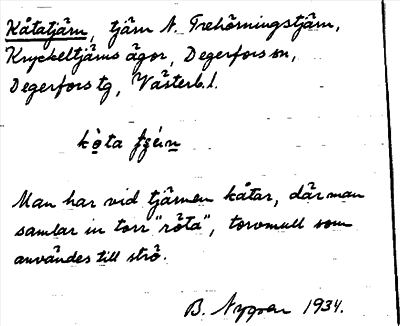 Kåtatjärn, tjärn N. Trehörningstjärn,
Kryckeltjärns ägor, Degerfors sn,
Degerfors tg, Västerb.l.
Man har vid tjärnen kåtar, där man
samlar in torr "röta", torvmull som
användes till strö.
B. Nygren 1934.